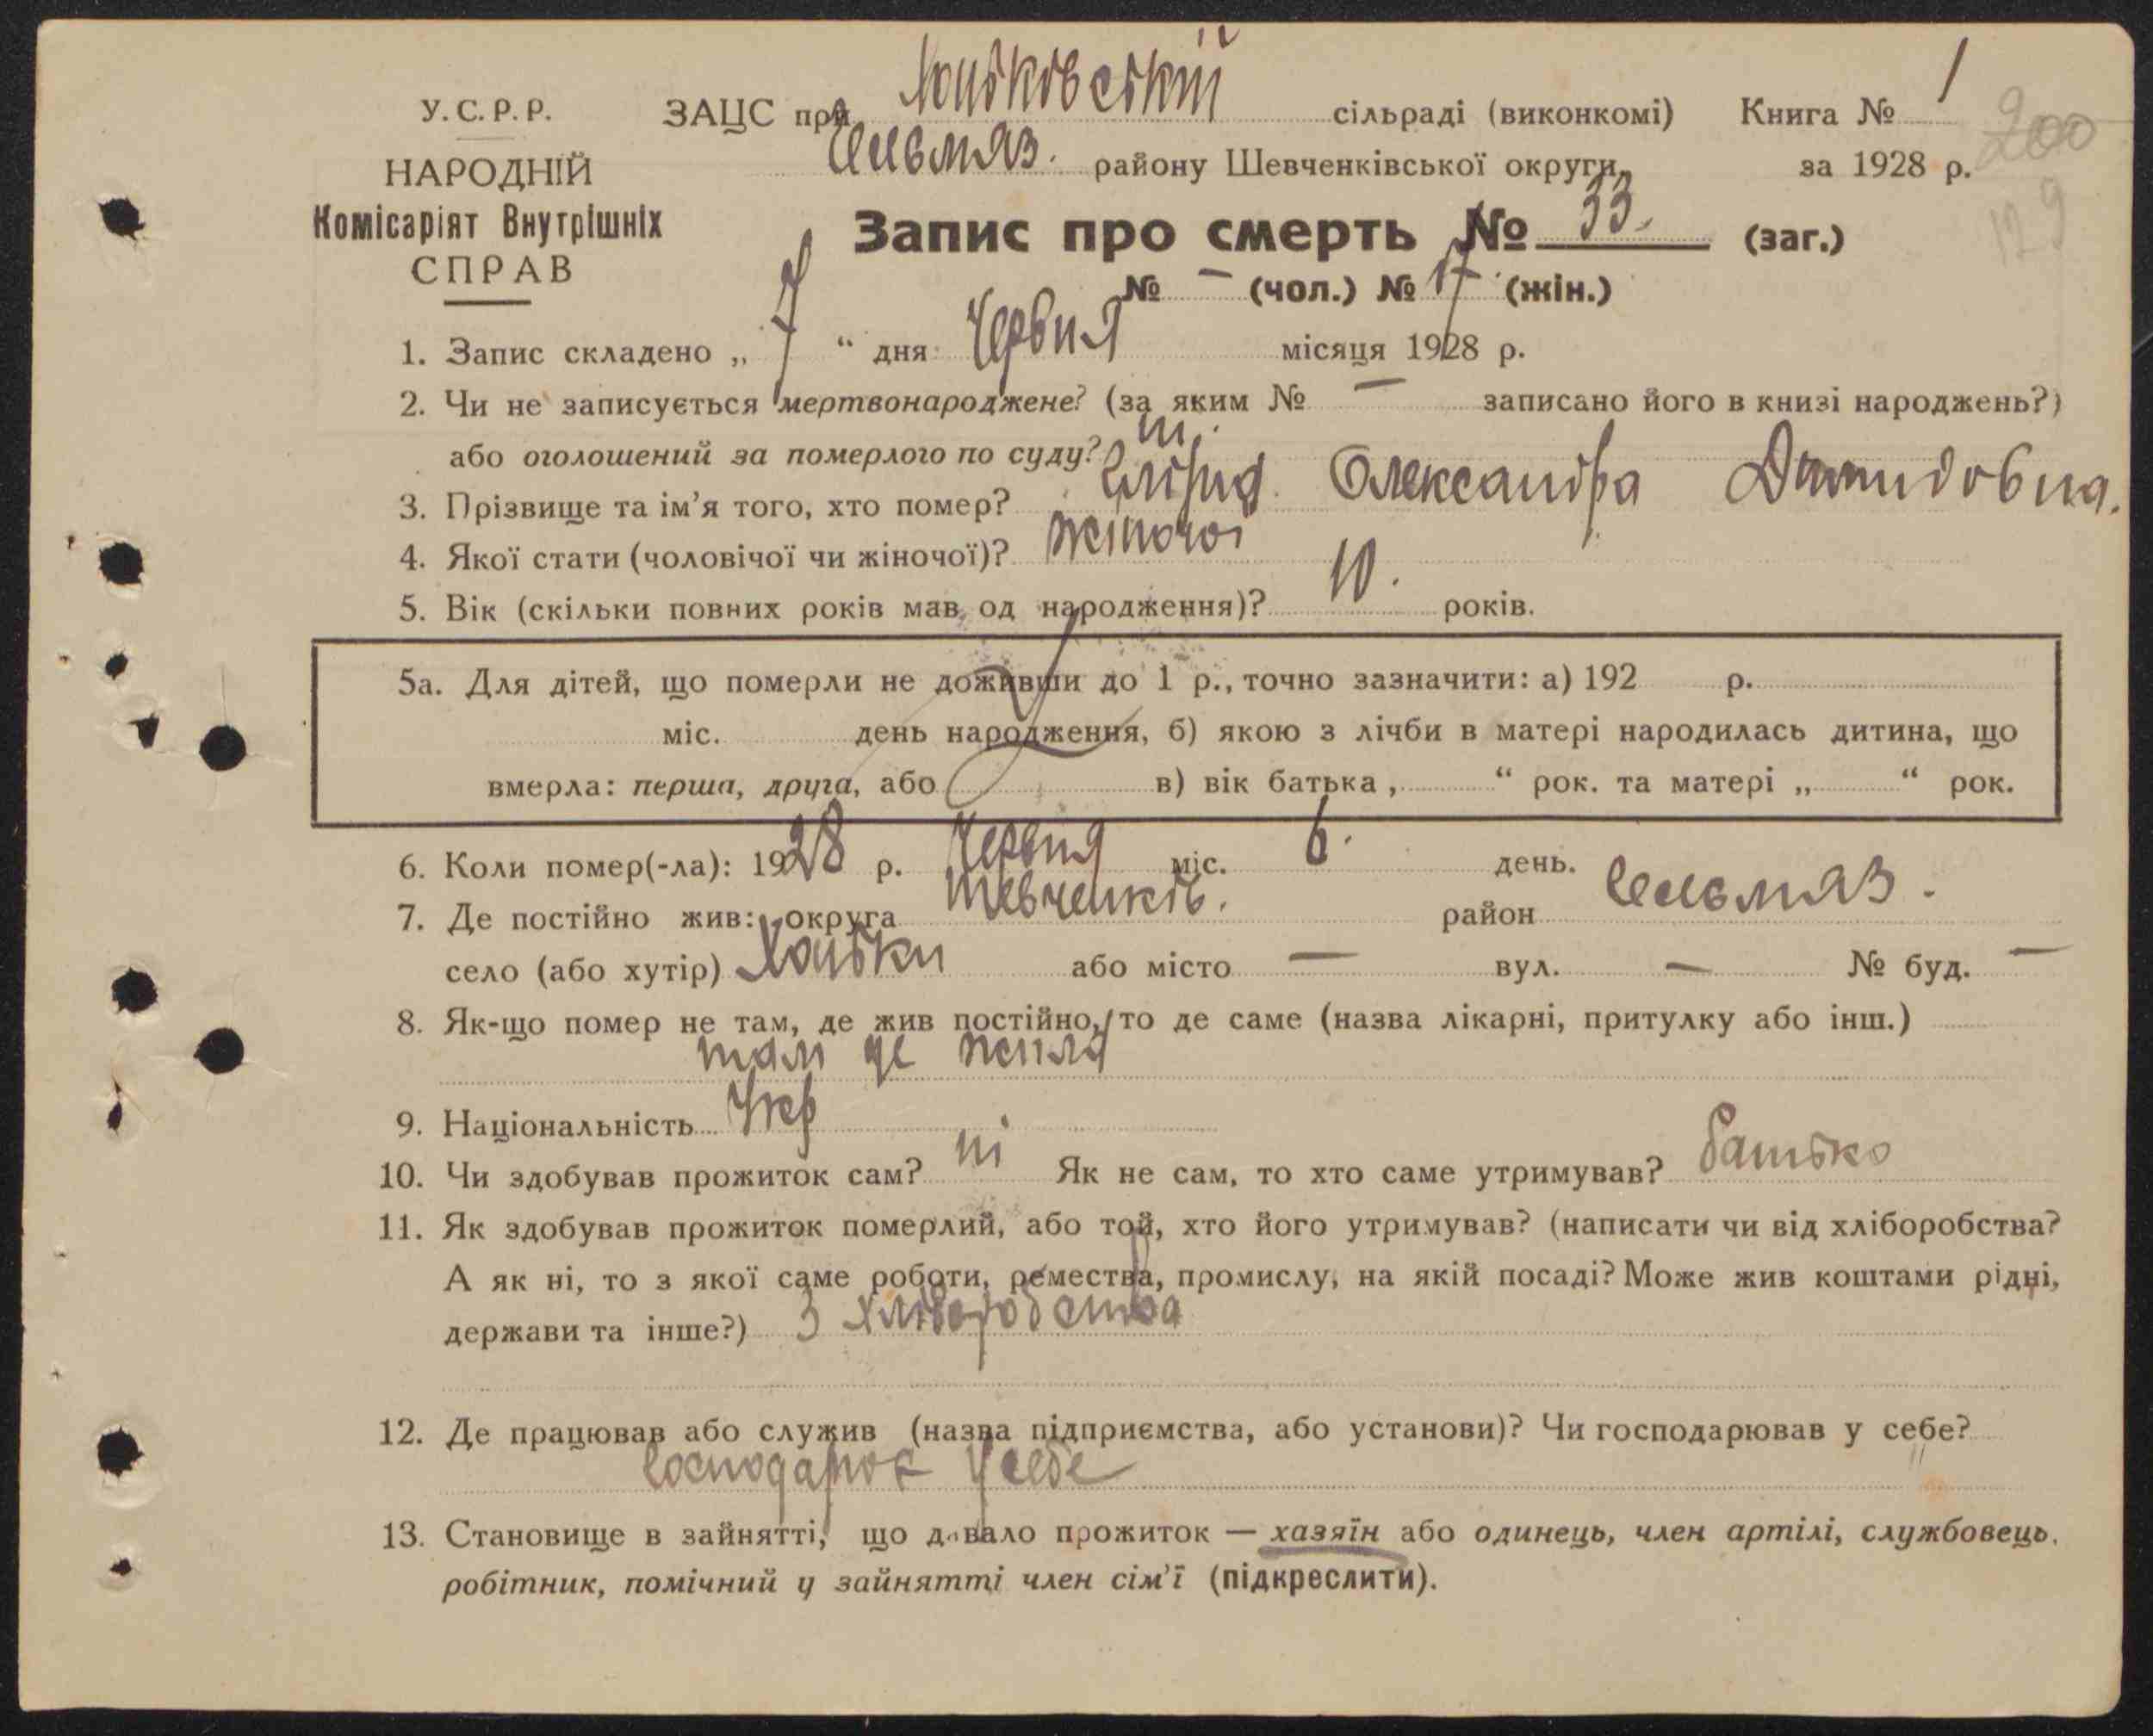 У.С.Р.Р. ЗАЦС при Хоцьковській сільраді (виконкомі) Книга № 1
200
Гельмяз. району Шевченківської округи. за 1928 р.
129
НАРОДНІЙ
Комісаріят Внутрішніх
СПРАВ
Запис про смерть № 33. (заг.)
№ — (чол.) № 17 (жін.)
1. Запис складено „ 7 “ дня Червня місяця 1928 р.
2. Чи не записується мертвонароджене? (за яким № — записано його в книзі народжень?)
або оголошений за померлого по суду? ні.
3. Прізвище та ім’я того, хто помер? Олександра Демидовна.
4. Якої стати (чоловічої чи жіночої)? жіночої
5. Вік (скільки повних років мав од народження)? 10. років.
5а. Для дітей, що померли не доживши до 1 р., точно зазначити: а) 192 р.
міс. день народження, б) якою з лічби в матері народилась дитина, що
вмерла: перша, друга, або в) вік батька , “ рок. та матері „ “ рок.
6. Коли помер(-ла): 1928 р. Червня міс. 6. день.
7. Де постійно жив: округа Шевченків. район Гельмяз.
село (або хутір) Хоцьки або місто — вул. — № буд. —
8. Як-що помер не там, де жив постійно, то де саме (назва лікарні, притулку або інш.)
там де жила
9. Національність Укр
10. Чи здобував прожиток сам? ні Як не сам, то хто саме утримував? батько
11. Як здобував прожиток померлий, або той, хто його утримував? (написати чи від хліборобства?
А як ні, то з якої саме роботи, ремества, промислу, на якій посаді? Може жив коштами рідні,
держави та інше?) З хліборобства
12. Де працював або служив (назва підприємства, або установи)? Чи господарював у себе?
Господарює у себе
13. Становище в зайнятті, що давало прожиток — хазяїн або одинець, член артілі, службовець.
робітник, помічний у зайнятті член сім’ї (підкреслити).